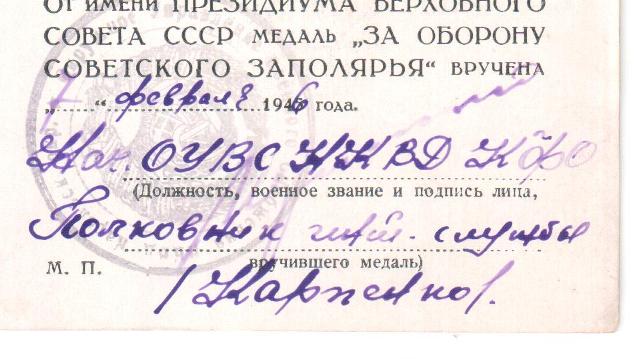 ОТ ИМЕНИ ПРЕЗИДИУМА ВЕРХОВНОГО
СОВЕТА СССР МЕДАЛЬ „ЗА ОБОРОНУ
СОВЕТСКОГО ЗАПОЛЯРЬЯ“ ВРУЧЕНА
„7“ февраля 1946 года.
Нач. ОУВС НКВД КФО
(Должность, военное звание и подпись лица,
Полковник инт. службы
М. П. вручившего медаль)
/Карпенко/.